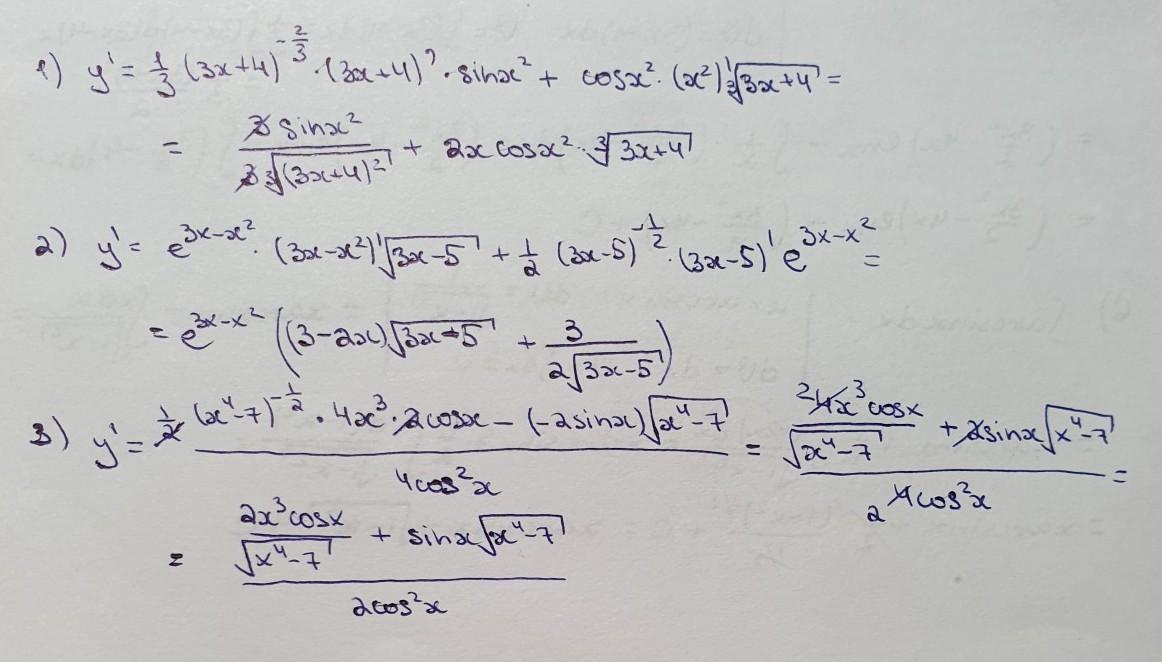 1) y' = 1/3 (3x+4)^(-2/3) · (3x+4)' · sinx² + cosx² · (x²)' ∛(3x+4) =
= 3 sinx² / (3 ∛((3x+4)²)) + 2x cosx² · ∛(3x+4)
2) y' = e^(3x-x²) · (3x-x²)' √(3x-5) + 1/2 (3x-5)^(-1/2) · (3x-5)' e^(3x-x²) =
= e^(3x-x²) ((3-2x) √(3x-5) + 3 / (2√(3x-5)))
3) y' = (1/2 (x⁴-7)^(-1/2) · 4x³ · 2cosx - (-2sinx) √(x⁴-7)) / (4cos²x) = (2 4x³ cosx / √(x⁴-7) + 2sinx √(x⁴-7)) / (2 4cos²x) =
= (2x³cosx / √(x⁴-7) + sinx √(x⁴-7)) / (2cos²x)